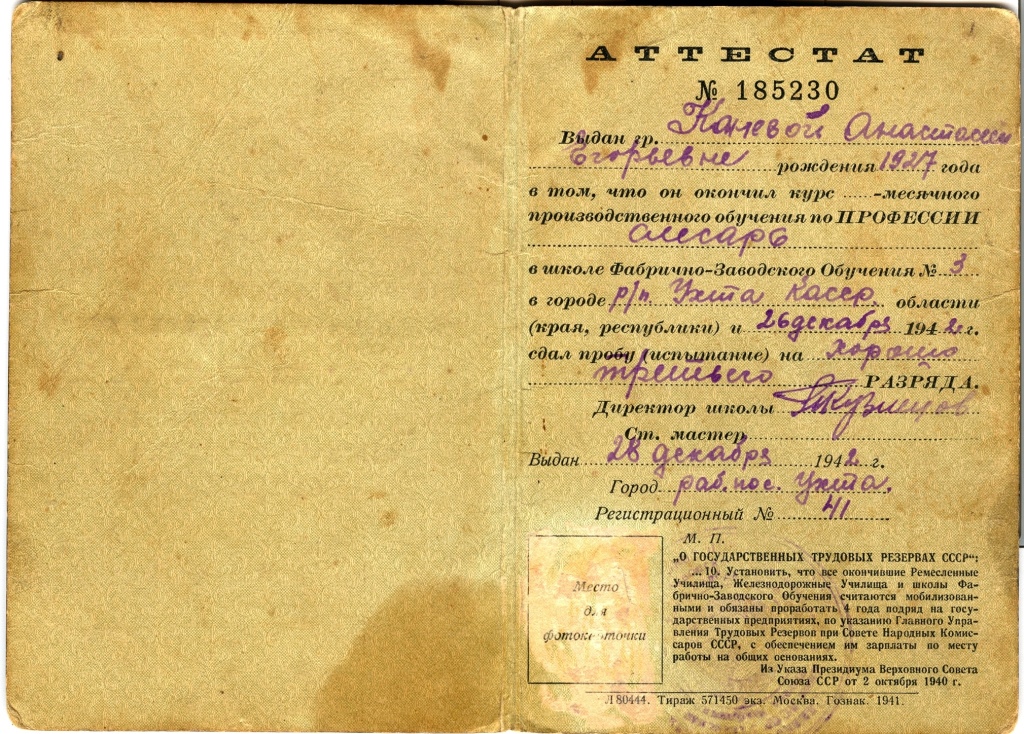 АТТЕСТАТ
№ 185230
Выдан гр. Каневой Анастасии
Егорьевне рождения 1927 года
в том, что он окончил курс ......-месячного
производственного обучения по ПРОФЕССИИ
слесарь
в школе Фабрично-Заводского Обучения № 3
в городе р/п. Ухта Касср. области
(края, республики) и 26 декабря 1942 г.
сдал пробу (испытание) на хорошо
третьего РАЗРЯДА.
Директор школы Кузнецов
Ст. мастер
Выдан 28 декабря 1942 г.
Город раб. пос. Ухта.
Регистрационный № 41
М. П.
Место
для
фотокарточки
„О ГОСУДАРСТВЕННЫХ ТРУДОВЫХ РЕЗЕРВАХ СССР“:
...10. Установить, что все окончившие Ремесленные
Училища, Железнодорожные Училища и школы Фа-
брично-Заводского Обучения считаются мобилизован-
ными и обязаны проработать 4 года подряд на госу-
дарственных предприятиях, по указанию Главного Упра-
вления Трудовых Резервов при Совете Народных Комис-
саров СССР, с обеспечением им зарплаты по месту
работы на общих основаниях.
Из Указа Президиума Верховного Совета
Союза ССР от 2 октября 1940 г.
Л80444. Тираж 571450 экз. Москва. Гознак. 1941.